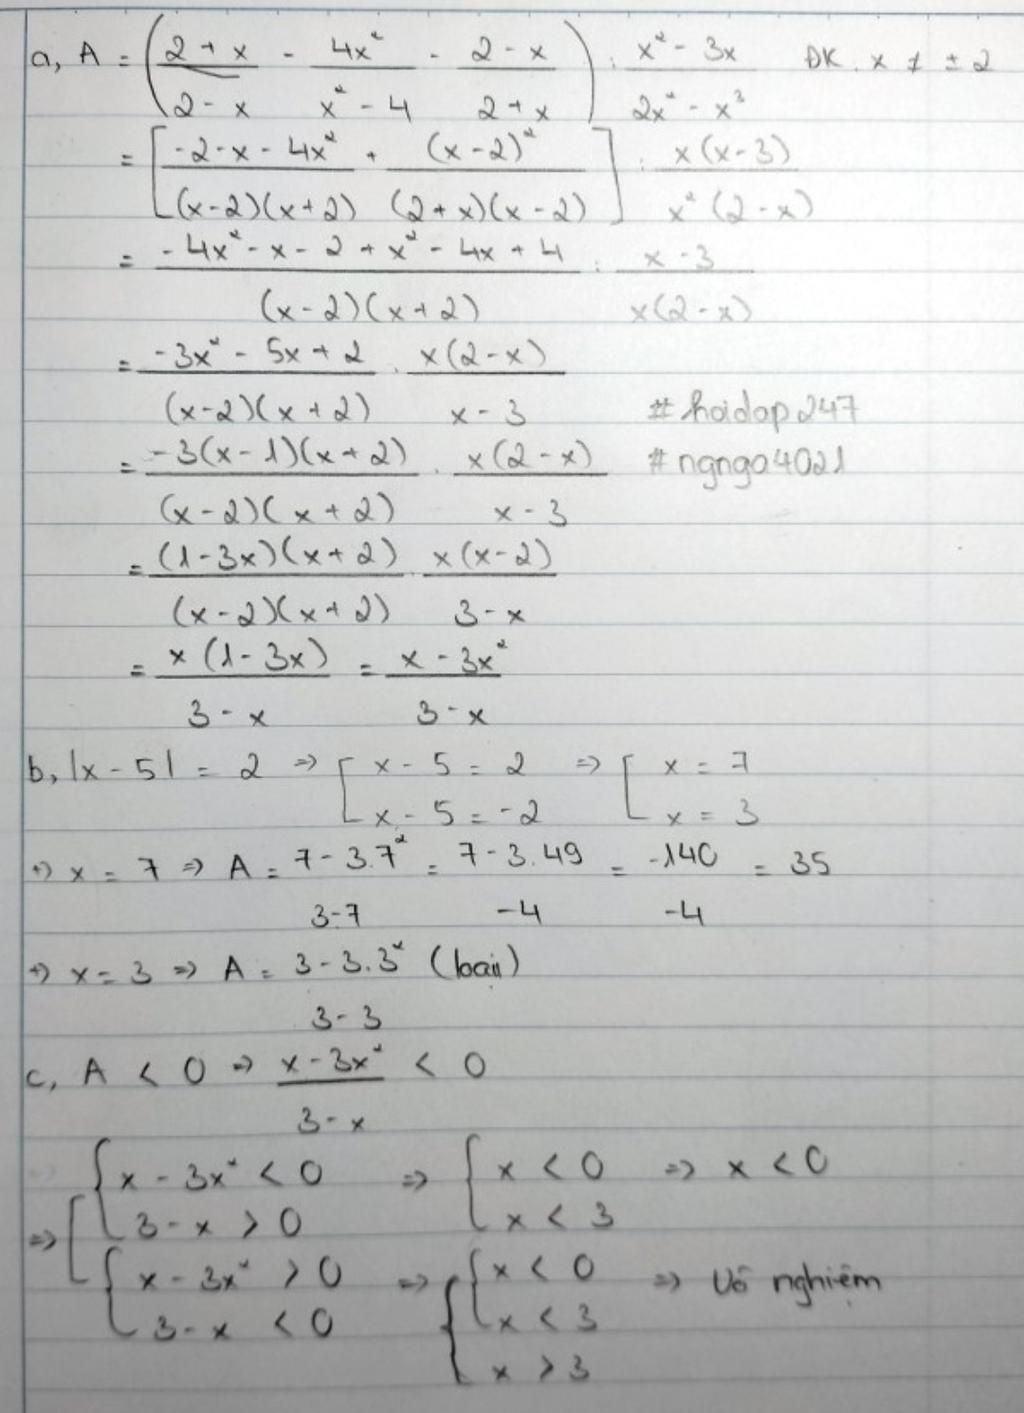 a, A = (2 + x / 2 - x - 4x² / x² - 4 - 2 - x / 2 + x) : x² - 3x / 2x² - x³ ĐK: x ≠ ± 2
= [-2 - x - 4x² / (x-2)(x+2) + (x-2)² / (2+x)(x-2)] : x(x-3) / x²(2-x)
= -4x² - x - 2 + x² - 4x + 4 / (x-2)(x+2) : x-3 / x(2-x)
= -3x² - 5x + 2 / (x-2)(x+2) . x(2-x) / x-3
#hoidap247
= -3(x-1)(x+2) / (x-2)(x+2) . x(2-x) / x-3
#ngngo4021
= (1-3x)(x+2) / (x-2)(x+2) . x(x-2) / 3-x
= x(1-3x) / 3-x = x-3x² / 3-x
b, |x-5| = 2 => [ x - 5 = 2 => [ x = 7
x - 5 = -2 x = 3
+) x = 7 => A = 7-3.7² / 3-7 = 7-3.49 / -4 = -140 / -4 = 35
+) x = 3 => A = 3-3.3² / 3-3 (loại)
c, A < 0 => x-3x² / 3-x < 0
=> [ { x - 3x² < 0 => { x < 0 => x < 0
3 - x > 0 x < 3
{ x - 3x² > 0 => { { x < 0 => Vô nghiệm
3 - x < 0 x < 3
x > 3